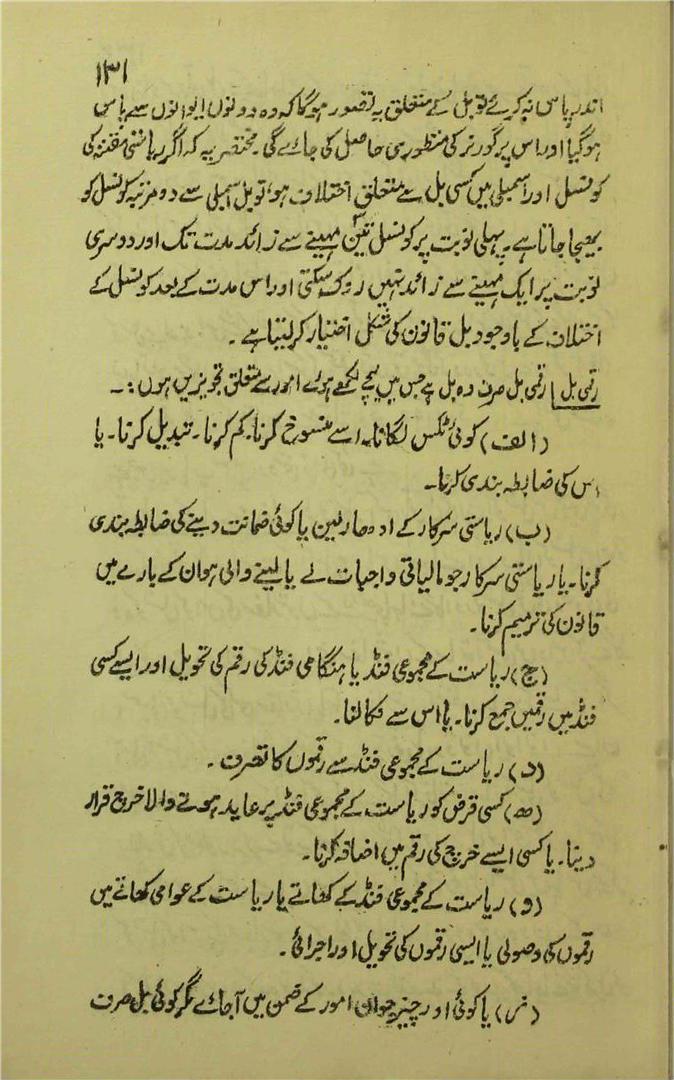 ۱۳۱
اندر پاس نہ کرے تو بل کے متعلق یہ تصور ہوگا کہ وہ دونوں ایوانوں سے پاس
ہوگیا اور اس پر گورنر کی منظوری حاصل کی جائے گی۔ مختصر یہ کہ اگر ریاستی مقننہ کی
کونسل اور اسمبلی میں کسی بل سے متعلق اختلاف ہو، تو بل اسمبلی سے دو مرتبہ کونسل کو
بھیجا جاتا ہے۔ پہلی نوبت پر کونسل تین مہینے سے زائد مدت تک اور دوسری
نوبت پر ایک مہینے سے زائد نہیں روک سکتی اور اس مدت کے بعد کونسل کے
اختلاف کے باوجود بل قانون کی شکل اختیار کرلیتا ہے۔
رقمی بل | رقمی بل صرف وہ بل ہے جس میں نیچے لکھے ہوئے امور سے متعلق تجویزیں ہوں:۔
(الف) کوئی ٹکس لگانا یا اسے منسوخ کرنا۔ کم کرنا۔ تبدیل کرنا۔ یا
اس کی ضابطہ بندی کرنا۔
(ب) ریاستی سرکار کے ادھار لین یا کوئی ضمانت دینے کی ضابطہ بندی
کرنا۔ یا ریاستی سرکار جو مالیاتی واجبات لے یا لینے والی ہو ان کے بارے میں
قانون کی ترمیم کرنا۔
(ج) ریاست کے مجموعی فنڈ یا ہنگامی فنڈ کی رقم کی تحویل اور ایسے کسی
فنڈ میں رقمیں جمع کرنا۔ یا اس سے نکالنا۔
(د) ریاست کے مجموعی فنڈ سے رقموں کا تصرف۔
(ھ) کسی قرض کو ریاست کے مجموعی فنڈ پر عاید ہونے والا خرچ قرار
دینا۔ یا کسی ایسے خرچ کی رقم میں اضافہ کرنا۔
(و) ریاست کے مجموعی فنڈ کے کھاتے یا ریاست کے عوامی کھاتے میں
رقموں کی وصولی یا ایسی رقموں کی تحویل اور اجرائی۔
(ز) یا کوئی اور چیز جو ان امور کے ضمن میں آجائے مگر کوئی بل صرف